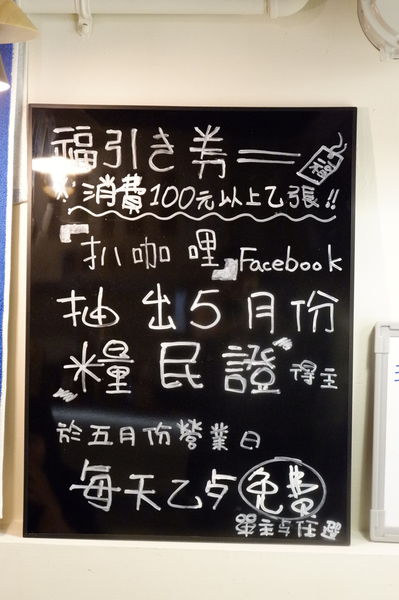 福引き券 福
消費100元以上乙張!!
『扒咖哩』Facebook
抽出5月份
糧民證 得主
於五月份營業日
每天乙步免費